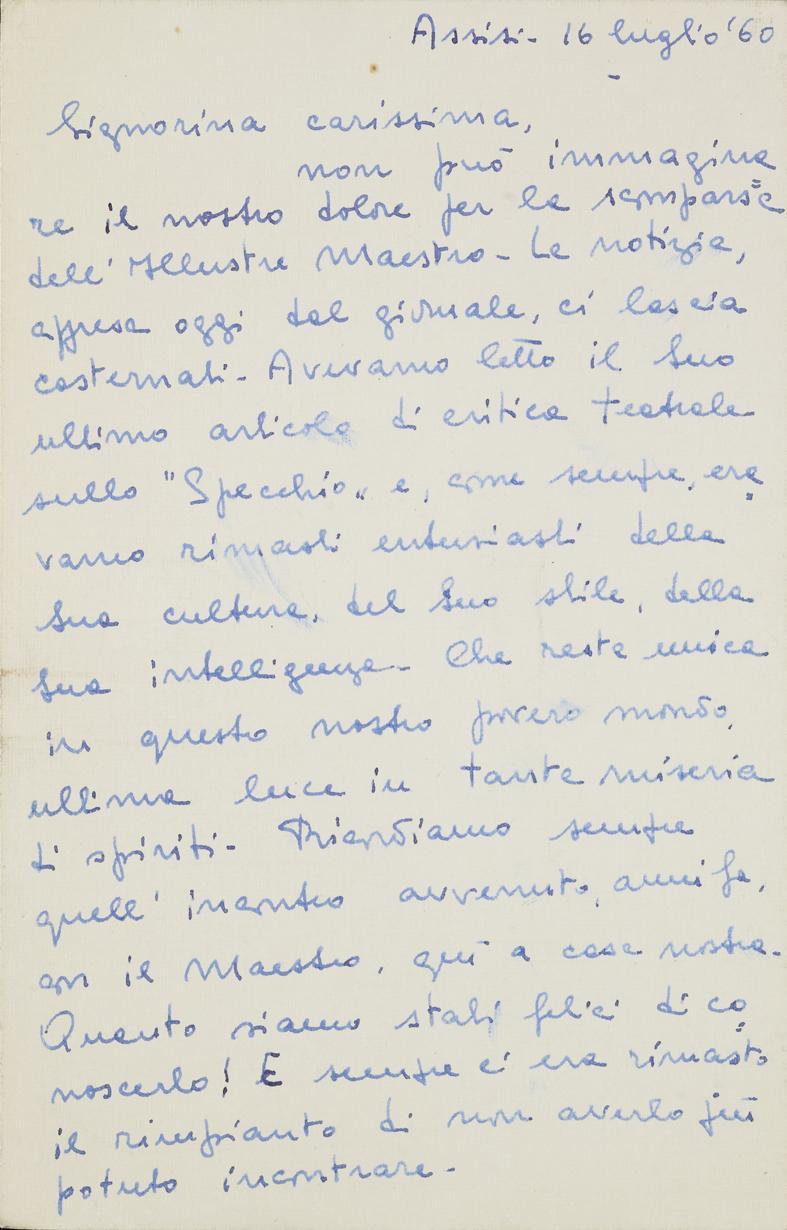 Assisi - 16 luglio '60
Signorina carissima,
non può immagina
re il nostro dolore per la scomparsa
dell'Illustre Maestro - La notizia,
appresa oggi dal giornale, ci lascia
costernati - Avevamo letto il Suo
ultimo articolo di critica teatrale
sullo "Specchio" e, come sempre, era
vamo rimasti entusiasti della
Sua cultura, del Suo stile, della
Sua intelligenza - Che resta unica
in questo nostro povero mondo,
ultima luce in tanta miseria
di spiriti - Ricordiamo sempre
quell'incontro avvenuto, anni fa,
con il Maestro, qui a casa nostra.
Quanto siamo stati felici di co
noscerlo! E sempre ci era rimasto
il rimpianto di non averlo più
potuto incontrare -